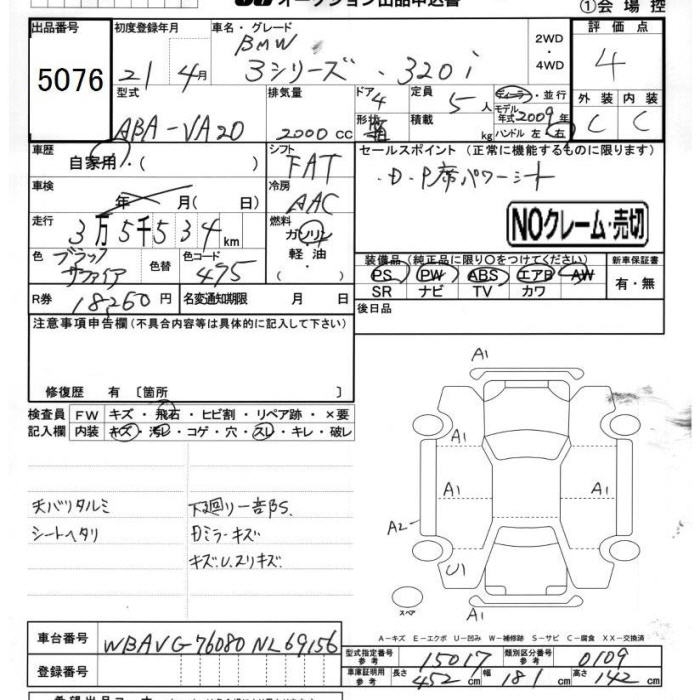 オークション出品申込書
①会場控
出品番号 初度登録年月 車名・グレード 評価点
5076 21 4月 BMW 2WD・4WD 4
3シリーズ・320i
型式 排気量 ドア 4 定員 5人 ディーラー・並行 外装 内装
ABA-VA20 2000cc 形状 積載 kg モデル年式2009年 C C
ハンドル 左・右
車歴 シフト セールスポイント(正常に機能するものに限ります)
自家用・( ) FAT ・D・P席パワーシート
車検 冷房
年 月( 日) AAC NOクレーム・売切
走行 燃料
3万5千534km ガソリン
色 色替 色コード 軽油 装備品(純正品に限り○をつけてください) 新車保証書
ブラックサファイア 475 ・( ) PS PW ABS エアB AW 有・無
SR ナビ TV カワ
R券 18260円 名変通知期限 月 日 後日品
注意事項申告欄(不具合内容等は具体的に記入して下さい)
修復歴 有〔箇所 〕
検査員 FW キズ・飛石・ヒビ割・リペア跡・×要
記入欄 内装 キズ・汚レ・コゲ・穴・スレ・キレ・破レ
天バリタルミ 下廻リ一部S.
シートヘタリ Dミラーキズ
キズ.U.スリキズ.
A1
A1
A1 A1
A2
U1
スペア A1
A-キズ E-エクボ U-凹み W-補修跡 S-サビ C-腐食 XX-交換済
車台番号 WBAVG76080NL69156
型式指定番号 参考 15017 類別区分番号 参考 0109
登録番号
車庫証明用 参考 長さ 452cm 幅 181cm 高さ 142cm